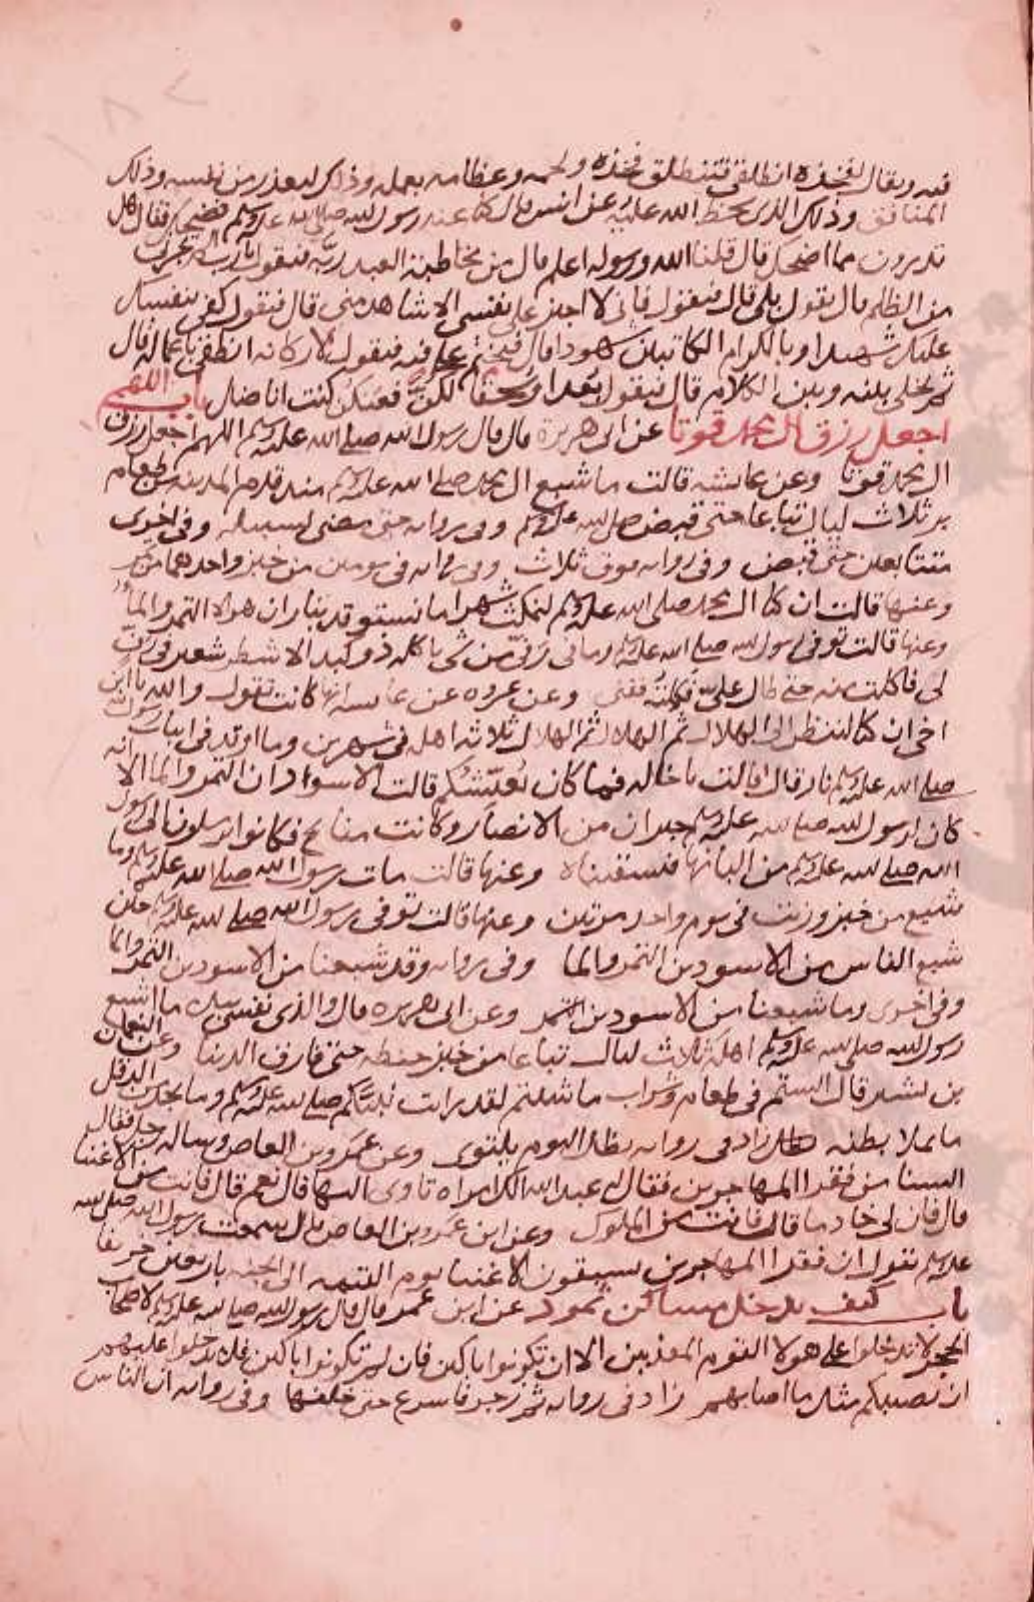 فيه ويقال لفخذه انطلقي فتنطلق فخذه ولحمه وعظامه بعمله وذلك ليعذر من نفسه وذلك
المنافق وذلك الذي سخط الله عليه عن انس قال كنا عند رسول الله صلى الله عليه وسلم فضحك فقال هل
تدرون مما اضحك قال قلنا الله ورسوله اعلم قال من مخاطبة العبد ربه فيقول يا رب الم تجرني
من الظلم قال يقول بلى قال فيقول فاني لا اجيز على نفسي الا شاهدا مني قال فيقول كفى بنفسك
عليك شهيدا وبالكرام الكاتبين شهودا قال فيختم على فيه فيقول لاركانه انطقي باعماله قال
ثم يخلى بينه وبين الكلام قال فيقول بعدا وسحقا لكن فعنكن كنت اناضل باب اللهم
اجعل رزق ال محمد قوتا عن ابي هريرة قال قال رسول الله صلى الله عليه وسلم اللهم اجعل رزق
ال محمد قوتا وعن عايشه قالت ما شبع ال محمد صلى الله عليه وسلم منذ قدم المدينه من طعام
بر ثلاث ليال تباعا حتى قبض صلى الله عليه وسلم وفي روايه حتى مضى لسبيله وفي اخرى
متتابعين حتى قبض وفي روايه فوق ثلاث وفي روايه في يومين من خبز واحدهما تمر
وعنها قالت ان كنا ال محمد صلى الله عليه وسلم لنمكث شهرا ما نستوقد بنار ان هو الا التمر والماء
وعنها قالت توفي رسول الله صلى الله عليه وسلم وما في رفي من شي ياكله ذو كبد الا شطر شعير في رف
لي فاكلت منه حتى طال علي فكلته ففني وعن عروه عن عايشه انها كانت تقول والله يا ابن
اختي ان كنا لننظر الى الهلال ثم الهلال ثم الهلال ثلاثة اهلة في شهرين وما اوقد في ابيات رسول الله
صلى الله عليه وسلم نار قال قلت يا خاله فما كان يعيشكم قالت الاسودان التمر والماء الا انه
كان لرسول الله صلى الله عليه وسلم جيران من الانصار وكانت منايح فكانوا يرسلون الى رسول
الله صلى الله عليه وسلم من البانها فيسقيناه وعنها قالت مات رسول الله صلى الله عليه وسلم وما
شبع من خبز وزيت في يوم واحد مرتين وعنها قالت توفي رسول الله صلى الله عليه وسلم حين
شبع الناس من الاسودين التمر والما وفي روايه وقد شبعنا من الاسودين التمر والما
وفي اخرى وما شبعنا من الاسودين التمر وعن ابي هريره قال والذي نفسي بيده ما اشبع
رسول الله صلى الله عليه وسلم اهله ثلاث ليال تباعا من خبز حنطه حتى فارق الدنيا وعن النعمان
بن بشير قال الستم في طعام وشراب ما شئتم لقد رايت نبيكم صلى الله عليه وسلم وما يجد من الدقل
ما يملا بطنه زاد في روايه يظل اليوم يلتوي وعن عمرو بن العاص وساله رجل فقال
السنا من فقرا المهاجرين فقال له عبد الله الك امراه تاوي اليها قال نعم قال فانت من الاغنيا
قال فان لي خادما قال فانت من الملوك وعن ابن عمرو بن العاص قال سمعت رسول الله صلى الله
عليه وسلم يقول ان فقرا المهاجرين يسبقون الاغنيا يوم القيمه الى الجنه باربعين خريفا
باب كيف يدخل مساكن ثمود عن ابن عمر قال قال رسول الله صلى الله عليه وسلم لاصحاب
الحجر لا تدخلوا على هولا القوم المعذبين الا ان تكونوا باكين فان لم تكونوا باكين فلا تدخلوا عليهم
ان يصيبكم مثل ما اصابهم زاد في روايه ثم زجر فاسرع حتى خلفها وفي روايه ان الناس